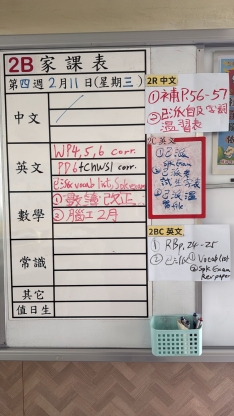 2B 家課表
第四週 2月11日(星期三)
中文
英文
WP4,5,6 corr.
PD6+CHWS1 corr.
已派vocab list, Spk exam
數學
① 數議 改正
② 腦工 2月
常識
其它
值日生
2R 中文
①補P.56-57
已派
溫習表
2C 英文
①已派
②已派
③已派溫
2BC 英文
① RBp.24-25
② 已派 ① Vocab list
② Spk Exam
Rev paper